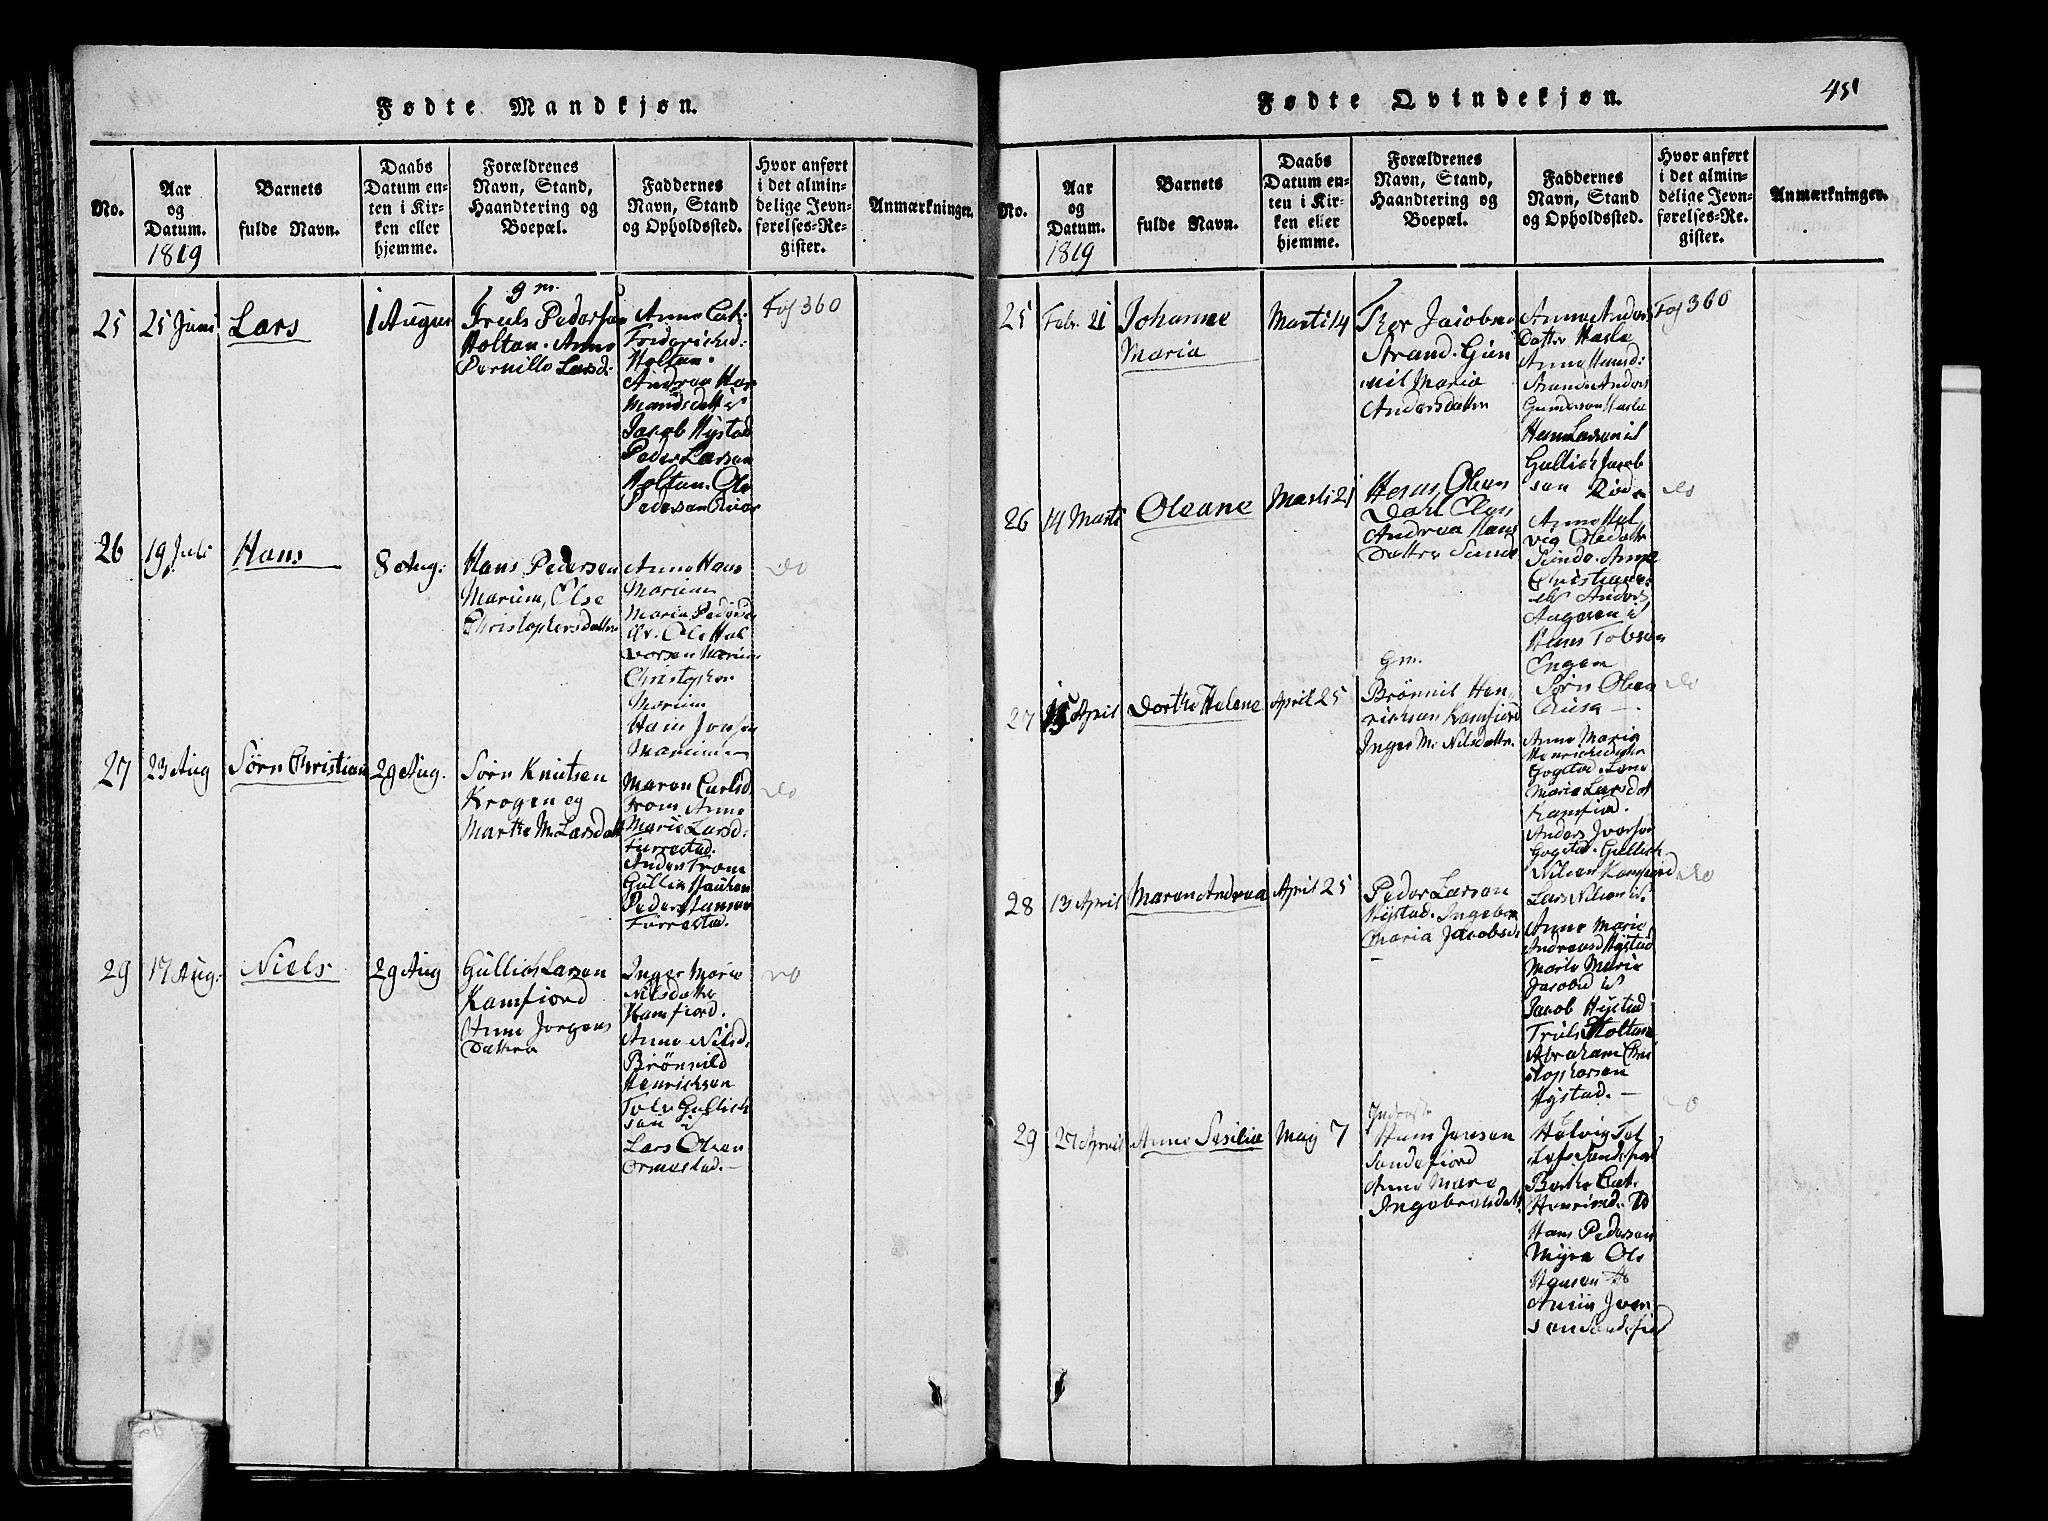 Fødte Mandkjøn.
No.
Aar
og
Datum.
1819
Barnets
fulde Navn.
Daabs
Datum en-
ten i Kir-
ken eller
hjemme.
Forældrenes
Navn, Stand,
Haandtering og
Boepæl.
Faddernes
Navn, Stand
og Opholdssted.
Hvor anført
i det almin-
delige Jevn-
førelses-Re-
gister.
Anmærkninger.
25
25 Juni
Lars
1 August
g m.
Truls Pedersen
Holtan. Anne
Pernille Larsd:
Anne Cat:
Fredericksd:
Holtan.
Andrea Her
mandsdatter
Jacob Hystad
Peder Larsen
Holtan. Ole
Pedersen
Fol 360
26
19 Juli
Hans
8 Aug:
Hans Pedersen
Marium, Else
Christophersdatter
Anne Hans
Marium
Maria Peders
dr. Ole Hal
vorsen Marium
Christopher
Marium
Hans Jensen
Marium
Do
27
23 Aug
Sørn Christian
29 Aug.
Sørn Knutsen
Krogen og
Marthe M. Larsdatt
Maren Carlsd
From Anne
Marie Larsd:
Furrestad.
Anders From
Gullik Hauken
Peder Hansen
Furrestad.
Do
29
17 Aug:
Niels
29 Aug
Gullich Larsen
Kamfiord
Anne Jorgens
Datter
Inger Marie
Nilsdatter
Kamfiord.
Anne Nilsd.
Brønnild
Henrichsen
Tolv Gullich
sen i
Lars Olsen
Ormestad.
Do
Fødte Qvindekjøn.
45
No.
Aar
og
Datum.
1819
Barnets
fulde Navn.
Daabs
Datum en-
ten i Kir-
ken eller
hjemme.
Forældrenes
Navn, Stand,
Haandtering og
Boepæl.
Faddernes
Navn, Stand
og Opholdssted.
Hvor anført
i det almin-
delige Jevn-
førelses-Re-
gister.
Anmærkninger.
25
Febr. 21
Johanne
Maria
Marti 14
Thor Jacobsen
Strand. Gun
nil Maria
Andersdatter
Anne Anders
Datter Hasle
Anne Hansd:
Strande Anders
Gundersen Hasle
Hans Larsen
Gullich Jacob
sen
Fol 360
26
14 Marti
Oleane
Marti 21
Olsen
Andrea Hans
Datter Sunde
Anne Hel
vig Olsdattr
Sunde. Anne
Christians
Anders
Hans Tobsen
Engem
Do
27
15 April
Dorthe Helene
April 25
Gm.
Brønnil Hen
richsen Kamfiord
Inger M. Nilsdattr.
Sørn Olsen
Anne Maria
Henrichsdatter
Gogstad. Lene
Maria Larsdat
Kamfiord.
Anders Iversen
Gogstad. Gullich
Nilsen Kamfiord
Do
28
13 April
Maren Andrea
April 25
Peder Larsen
Hystad. Ingeborg
Maria Jacobsd:
Lars Nilsen
Anne Marie
Andreasd Hystad
Marte Maria
Jacobsd
Jacob Hystad
Truls Holtan
Abraham Chri
stophersen
Hystad.
Do
29
27 April
Anne Sesilia
May 7
Hans Jensen
Sandefiord
Anne Marie
Ingebretsdatt.
Helvig Tol
lefs Sandefiord
Berthe Cat.
Henricsd. Do
Hans Pedersen
Myra Ole
Hansen Do
Iver
sen Sandefiord
Do